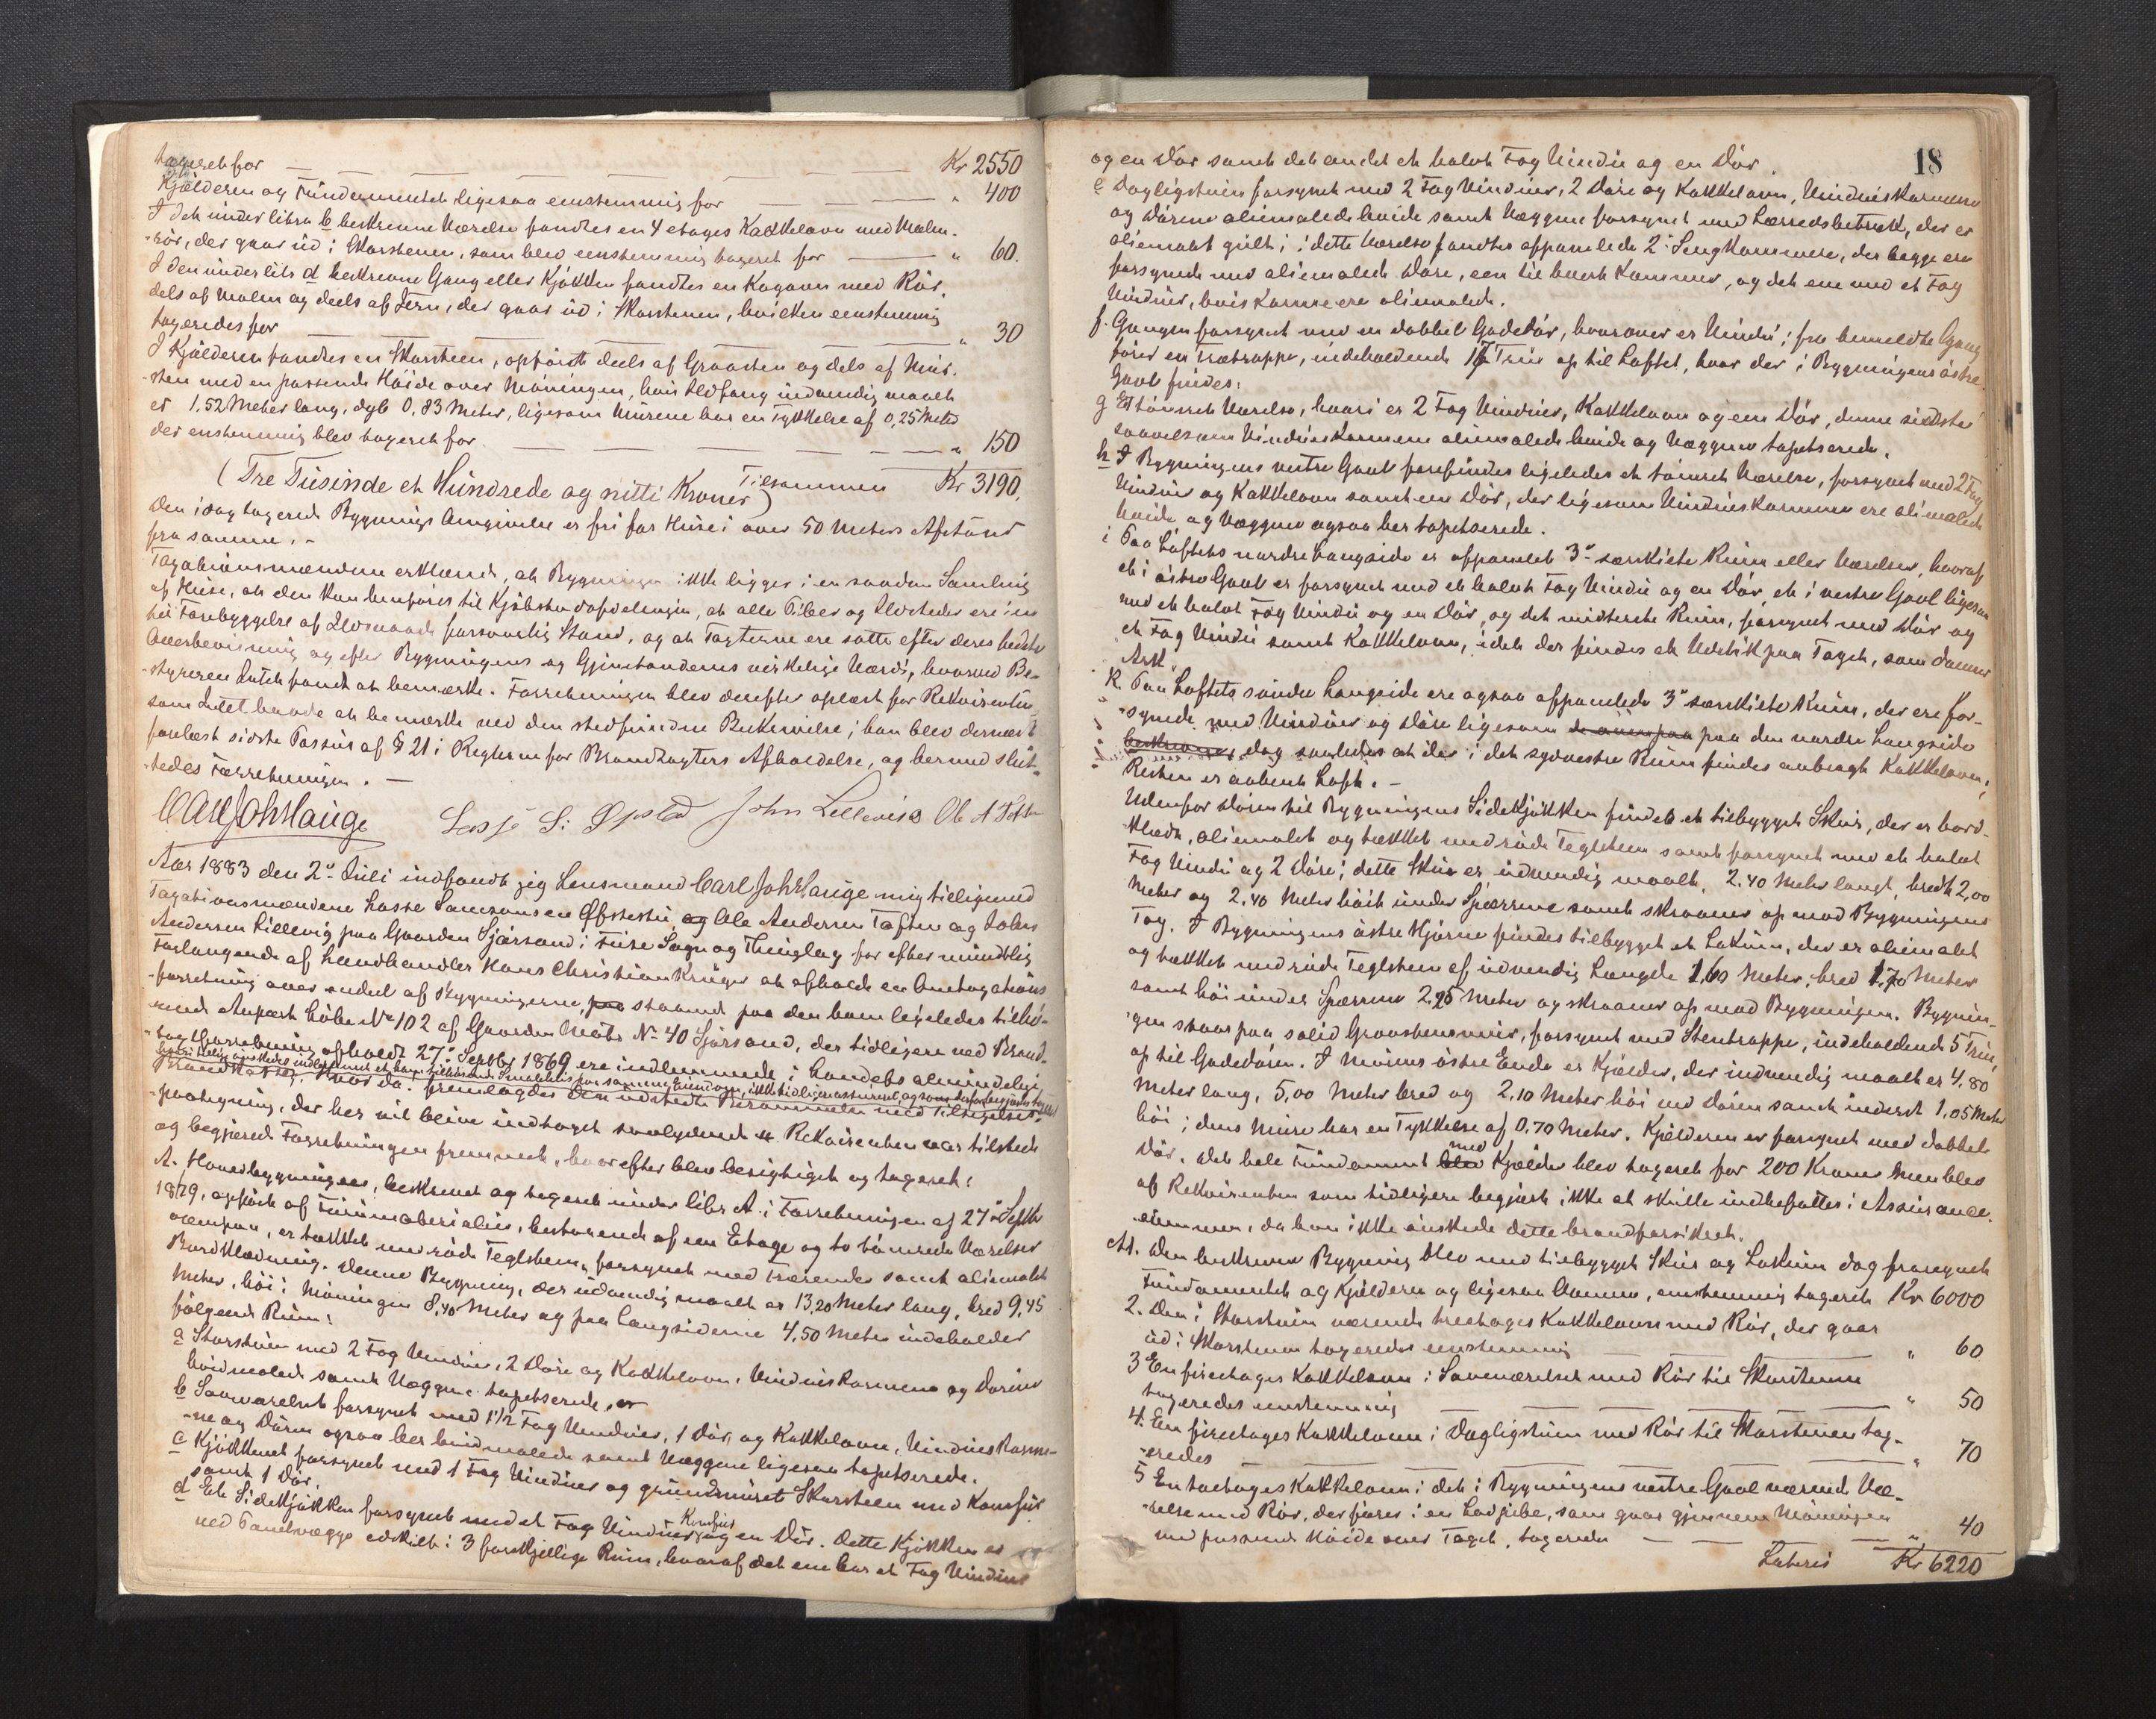 tageret for — Kr 2550
Kjælderen og Fundamentet ligesaa eenstemmig for — " 400
I det under litra b beskrevne Værelse fandtes en 4 etages Kakkelovn med Malm-
-rör, der gaar ud i Skorstenen, som blev eenstemmig tageret for — " 60.
I den under litr d beskrevne Gang eller Kjökken fandtes en Kogeovn med Rör,
dels af Malm og deels af Jern, der gaar ud i Skorstenen, hvilken eenstemmig
tageredes for — " 30
I Kjælderen fandtes en Skorsteen, opfördt deels af Graasten og dels af Mur-
-sten med en passende Höide over Möningen, hvis Ildfang indvendig maalt
er 1,52 Meter lang, dyb 0,83 Meter, ligesom Murene har en Tykkelse af 0,25 Meter
der enstemmig blev tageret for — " 150
Tilsammen Kr 3190,
(Tre Tusinde et Hundrede og nitti Kroner)
Den idag tagerede Bygnings Omgivelse er fri for Huse i over 50 Meters Afstand
fra samme. -
Tagationsmændene erklærede, at Bygningen ikke ligger i en saadan Samling
af Huse, at den kan henföres til Kjöbstadafdelingen, at alle Piber og Ildsteder ere i en
til Forebyggelse af Ildsvaade forsvarlig Stand, og at Taxterne ere satte efter deres bedste
Overbeviisning og efter Bygningens og Gjenstandenes virkelige Værdi, hvorved Be-
-styreren Intet fandt at bemærke. Forretningen blev derefter oplæst for Rekvirenten
som Intet havde at bemærke ved den stedfundne Beskrivelse; han blev dernæst
forelæst sidste Passus af § 21 i Reglerne for Brandtagters Afholdelse, og hermed slut-
-tedes Forretningen. —
Carl Joh Hauge Lasse S: Øpsta John Lillevik Ole A Toft
Aar 1883 den 2den Juli indfandt jeg Lensmand Carl Joh Hauge mig tilligemed
Tagationsmændene Lasse Samsonsen Øfstestu og Ole Andersen Toften og Johns
Andersen Lillevig paa Gaarden Sjörsand i Fure Sogn og Thinglag for efter mundtlig
Forlangende af Landhandler Hans Christian Krüger at afholde en Omtagations
-forretning over endeel af Bygningerne, paa staaende paa den ham ligeledes tilhö-
-rende Anpart Löbe No 102 af Gaarden Matr No 40 Sjörsand, der tidligere ved Brand-
-tagtforretning afholdt 27de Septbr 1869 ere indlemmede i Landets almindelige
Brandkasse. Hvor da: fremlagdes den udstedte Berammelse med Tilsigelses-
-paategning, der her vil blive indtaget saalydende #. Rekvirenten var tilstede
og begjærede Forretningen fremmet, hvorefter blev besigtiget og tageret:
A. Hovedbygningen, beskrevet og tageret under litr A. i Forretningen af 27de Septbr
1879, opfört af Furumaterialier, bestaaende af een Etage og to tömrede Værelser
ovenpaa, er tækket med röde Teglsteen, forsynet med Tagrender samt oliemalet
Bordklædning. Denne Bygning, der udvendig maalt er 13,20 Meter lang, bred 9,45
Meter, höi i Möningen 8,40 Meter og paa Langsiderne 4,50 Meter indeholder
fölgende Rum:
a Storstuen med 2 Fag Vinduer, 2 Döre og Kakkelovn, Vindueskarmene og Dörene
hvidmalede samt Væggene tapetserede.
b Soveværelset forsynet med 1 1/2 Fag Vinduer, 1 Dör og Kakkelovn, Vindueskarme-
-ne og Dören ogsaa her hvidmalede samt Væggene ligesaa tapetserede.
c Kjökkenet forsynet med 1 Fag Vinduer og grundmuret Skorsteen med Komfur
samt 1 Dör.
d Et Sidekjökken forsynet med et Fag Vinduer, Komfur og en Dör. Dette Kjökken er
ved Panelvægge adskilt i 3 forskjellige Rum, hvoraf det ene har et Fag Vinduer
18
og en Dör samt det andet et halvt Fag Vindu og en Dör.
e Dagligstuen forsynet med 2 Fag Vinduer, 2 Döre og Kakkelovn, Vindueskarmene
og Dörene oliemalede hvide samt Væggene forsynet med Lærredsbetræk, der er
oliemalt gult; i dette Værelse fandtes afpanelede 2de Sengkammere, der begge ere
forsynede med oliemalede Döre, een til hvert Kammer, og det ene med et Fag
Vinduer, hvis Karme ere oliemalede.
f. Gangen forsynet med en dobbel Gadedör, hvorover er Vindu; fra bemeldte Gang
förer en Trætrappe, indeholdende 17 Trin op til Loftet, hvor der i Bygningens östre
Gavl findes:
g Et tömret Værelse, hvori er 2 Fag Vinduer, Kakkelovn og een Dör, denne sidste
saavelsom Vindueskarmene oliemalede hvide og Væggene tapetserede.
h I Bygningens vestre Gavl forefindes ligeledes et tömret Værelse, forsynet med 2 Fag
Vinduer og Kakkelovn samt een Dör, der ligesom Vindueskarmene ere oliemalede
hvide og Væggene ogsaa her tapetserede.
i Paa Loftets nordre Langside er afpanelet 3de særskilte Rum eller Værelser, hvoraf
et i östre Gavl er forsynet med et halvt Fag Vindu og en Dör, et i vestre Gavl ligesaa
med et halvt Fag Vindu og en Dör, og det midterste Rum, forsynet med Dör og
et Fag Vindu samt Kakkelovn, idet der findes et Udstik paa Taget, som danner
Ark.
k. Paa Loftets söndre Langside ere ogsaa afpanelede 3de særskilte Rum, der ere for-
-synede med Vinduer og Döre ligesom paa den nordre Langside
beskrevne, dog saaledes at der i det sydvestre Rum findes anbragt Kakkelovn.
Resten er aabent Loft. -
Udenfor Dören til Bygningens Sidekjökken findes et tilbygget Skur, der er bord-
-klædt, oliemalet og tækket med röde Teglsteen samt forsynet med et halvt
Fag Vindu og 2 Döre; dette Skur er udvendig maalt, 2,40 Meter langt, bredt 2,00
Meter og 2,40 Meter höit under Spærrene samt skraaner op mod Bygningens
Tag. I Bygningens östre Hjörne findes tilbygget et Lokum, der er oliemalet
og tækket med röde Teglsteen af udvendig Længde 1,60 Meter, bred 1,70 Meter
samt höi under Spærrene 2,25 Meter og skraaner op mod Bygningen. Bygnin-
-gen staar paa solid Graastensmur, forsynet med Stentrappe, indeholdende 5 Trin,
op til Gadedören. I Murens östre Ende er Kjælder, der indvendig maalt er 4,80
Meter lang, 5,00 Meter bred og 2,10 Meter höi ved Dören samt inderst 1,05 Meter
höi; dens Mure har en Tykkelse af 0,70 Meter. Kjælderen er forsynet med dobbelt
Dör. Det hele Fundament blev med Kjælder blev tageret for 200 Kroner men blev
af Rekvirenten som tidligere begjært ikke at skulle indbefattes i Assurance-
summen, da han ikke önskede dette brandforsikret.
A1. Den beskrevne Bygning blev med tilbygget Skur og Lokum dog fraregnet
Fundamentet og Kjælderen og ligesaa Ovnene, eenstemmig tageret Kr 6000
2. Den i Storstuen værende treetages Kakkelovn med Rör, der gaar
ud i Skorstenen tageredes eenstemmig — " 60
3 En fireetages Kakkelovn i Soveværelset med Rör til Skorstenen
tageredes eenstemmig — " 50
4. En fireetages Kakkelovn i Dagligstuen med Rör til Skorstenen tag-
-eredes — " 70
5 En toetages Kakkelovn i det i Bygningens vestre Gavl værende Væ-
-relse med Rör, der föres i en Lerpibe, som gaar gjennem Möningen
med passende Höide over Taget, tageredes — " 40
Lateris Kr 6220